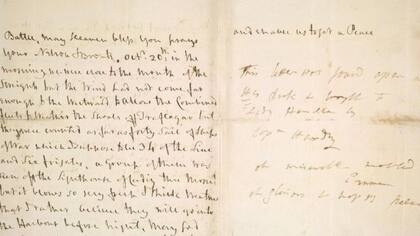 Battle, may heaven bless you prays
your Nelson & Bronte, Octr. 20th in the
morning we were close to the mouth of the
Streights but the Wind had not come far
enough to the Westward to allow the Combined
Fleets to Weather the Shoals off Traflagar but
they were counted as far as forty Sail of Ships
of War which I suppose to be 34 of the Line
and Six frigates, a group of them was
seen off the Lighthouse of Cadiz this Morng
but it blows so very fresh & thick weather
that I rather believe they will go into
the Harbour before night, May God
and enable us to get a Peace
This letter was found open on
His Desk & brought to
Lady Hamilton by
Capn Hardy
oh miserable wretched
Emma
oh glorious & happy Nelson